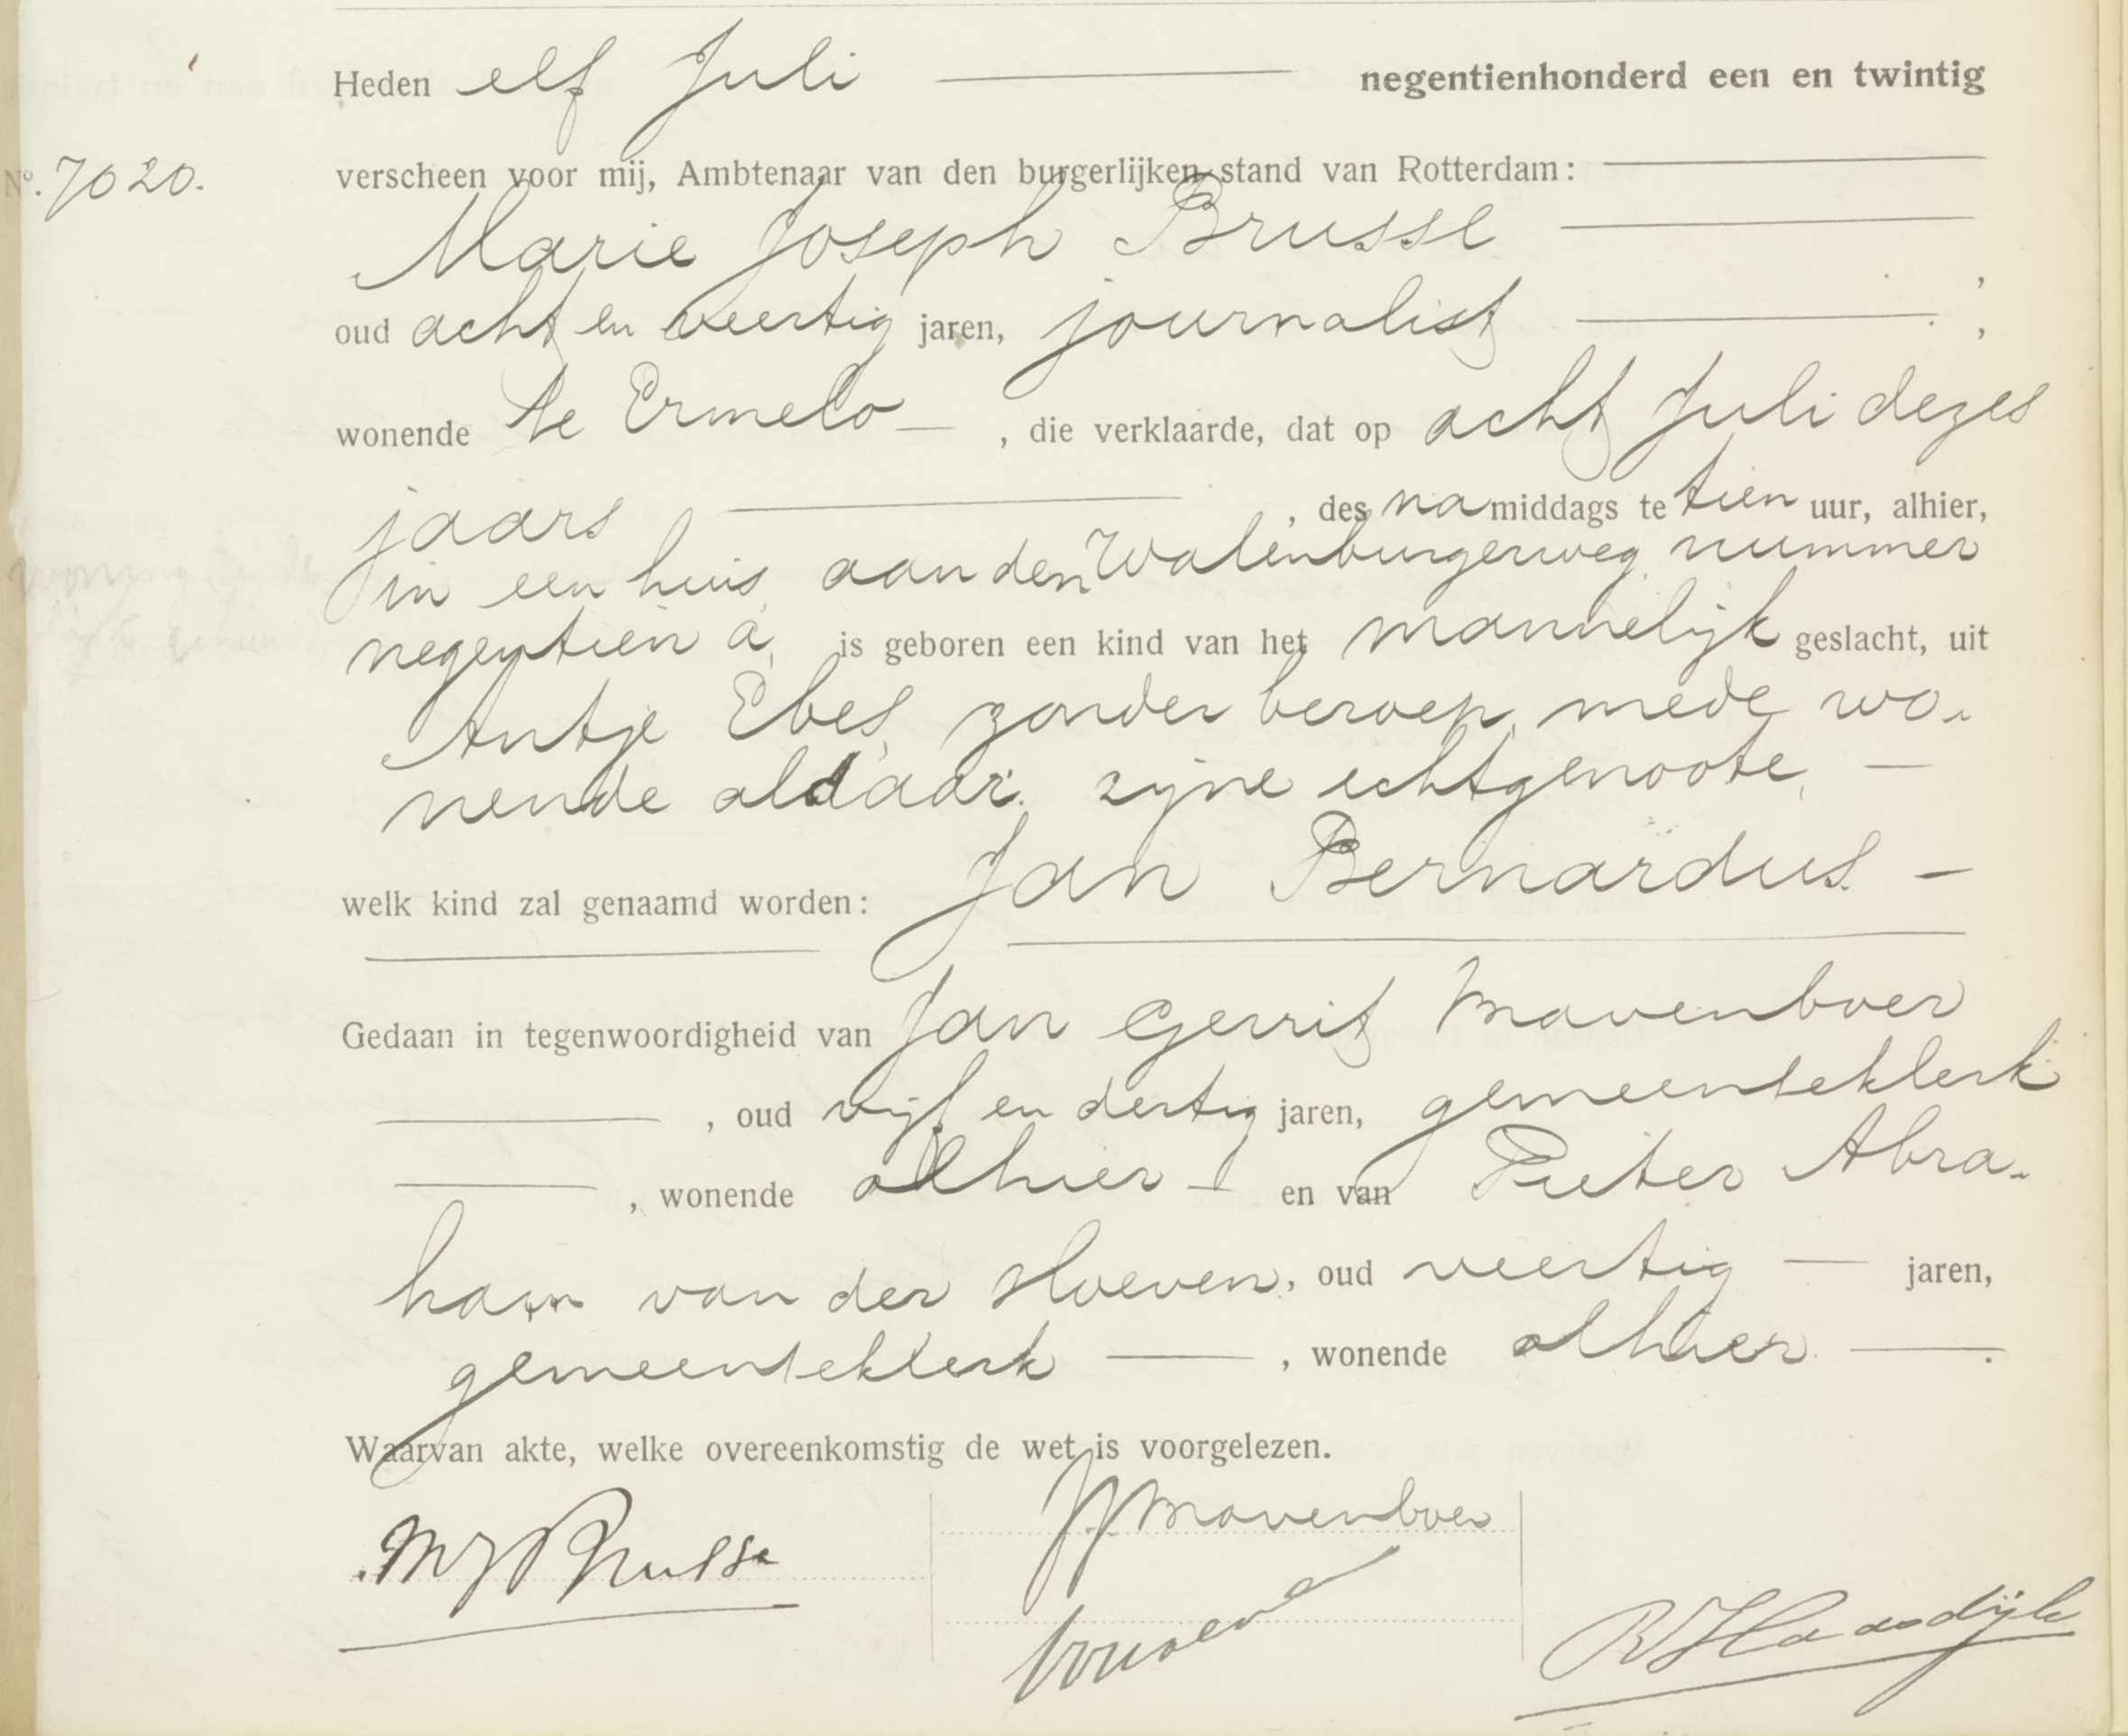 Heden elf Juli negentienhonderd een en twintig
No. 7020. verscheen voor mij, Ambtenaar van den burgerlijken stand van Rotterdam:
Marie Joseph Brusse
oud acht en veertig jaren, journalist
wonende te Ermelo, die verklaarde, dat op acht Juli dezes
jaars, des namiddags te tien uur, alhier,
in een huis aan den Walenburgerweg nummer
negentien a, is geboren een kind van het mannelijk geslacht, uit
Antje Ebes, zonder beroep, mede wo-
nende aldaar, zijne echtgenoote,
welk kind zal genaamd worden: Jan Bernardus
Gedaan in tegenwoordigheid van Jan Gerrit Mavenboer
, oud vijf en dertig jaren, gemeenteklerk
, wonende alhier en van Pieter Abra-
ham van der Hoeven, oud veertig jaren,
gemeenteklerk, wonende alhier.
Waarvan akte, welke overeenkomstig de wet is voorgelezen.
MJ Brusse
JG Mavenboer